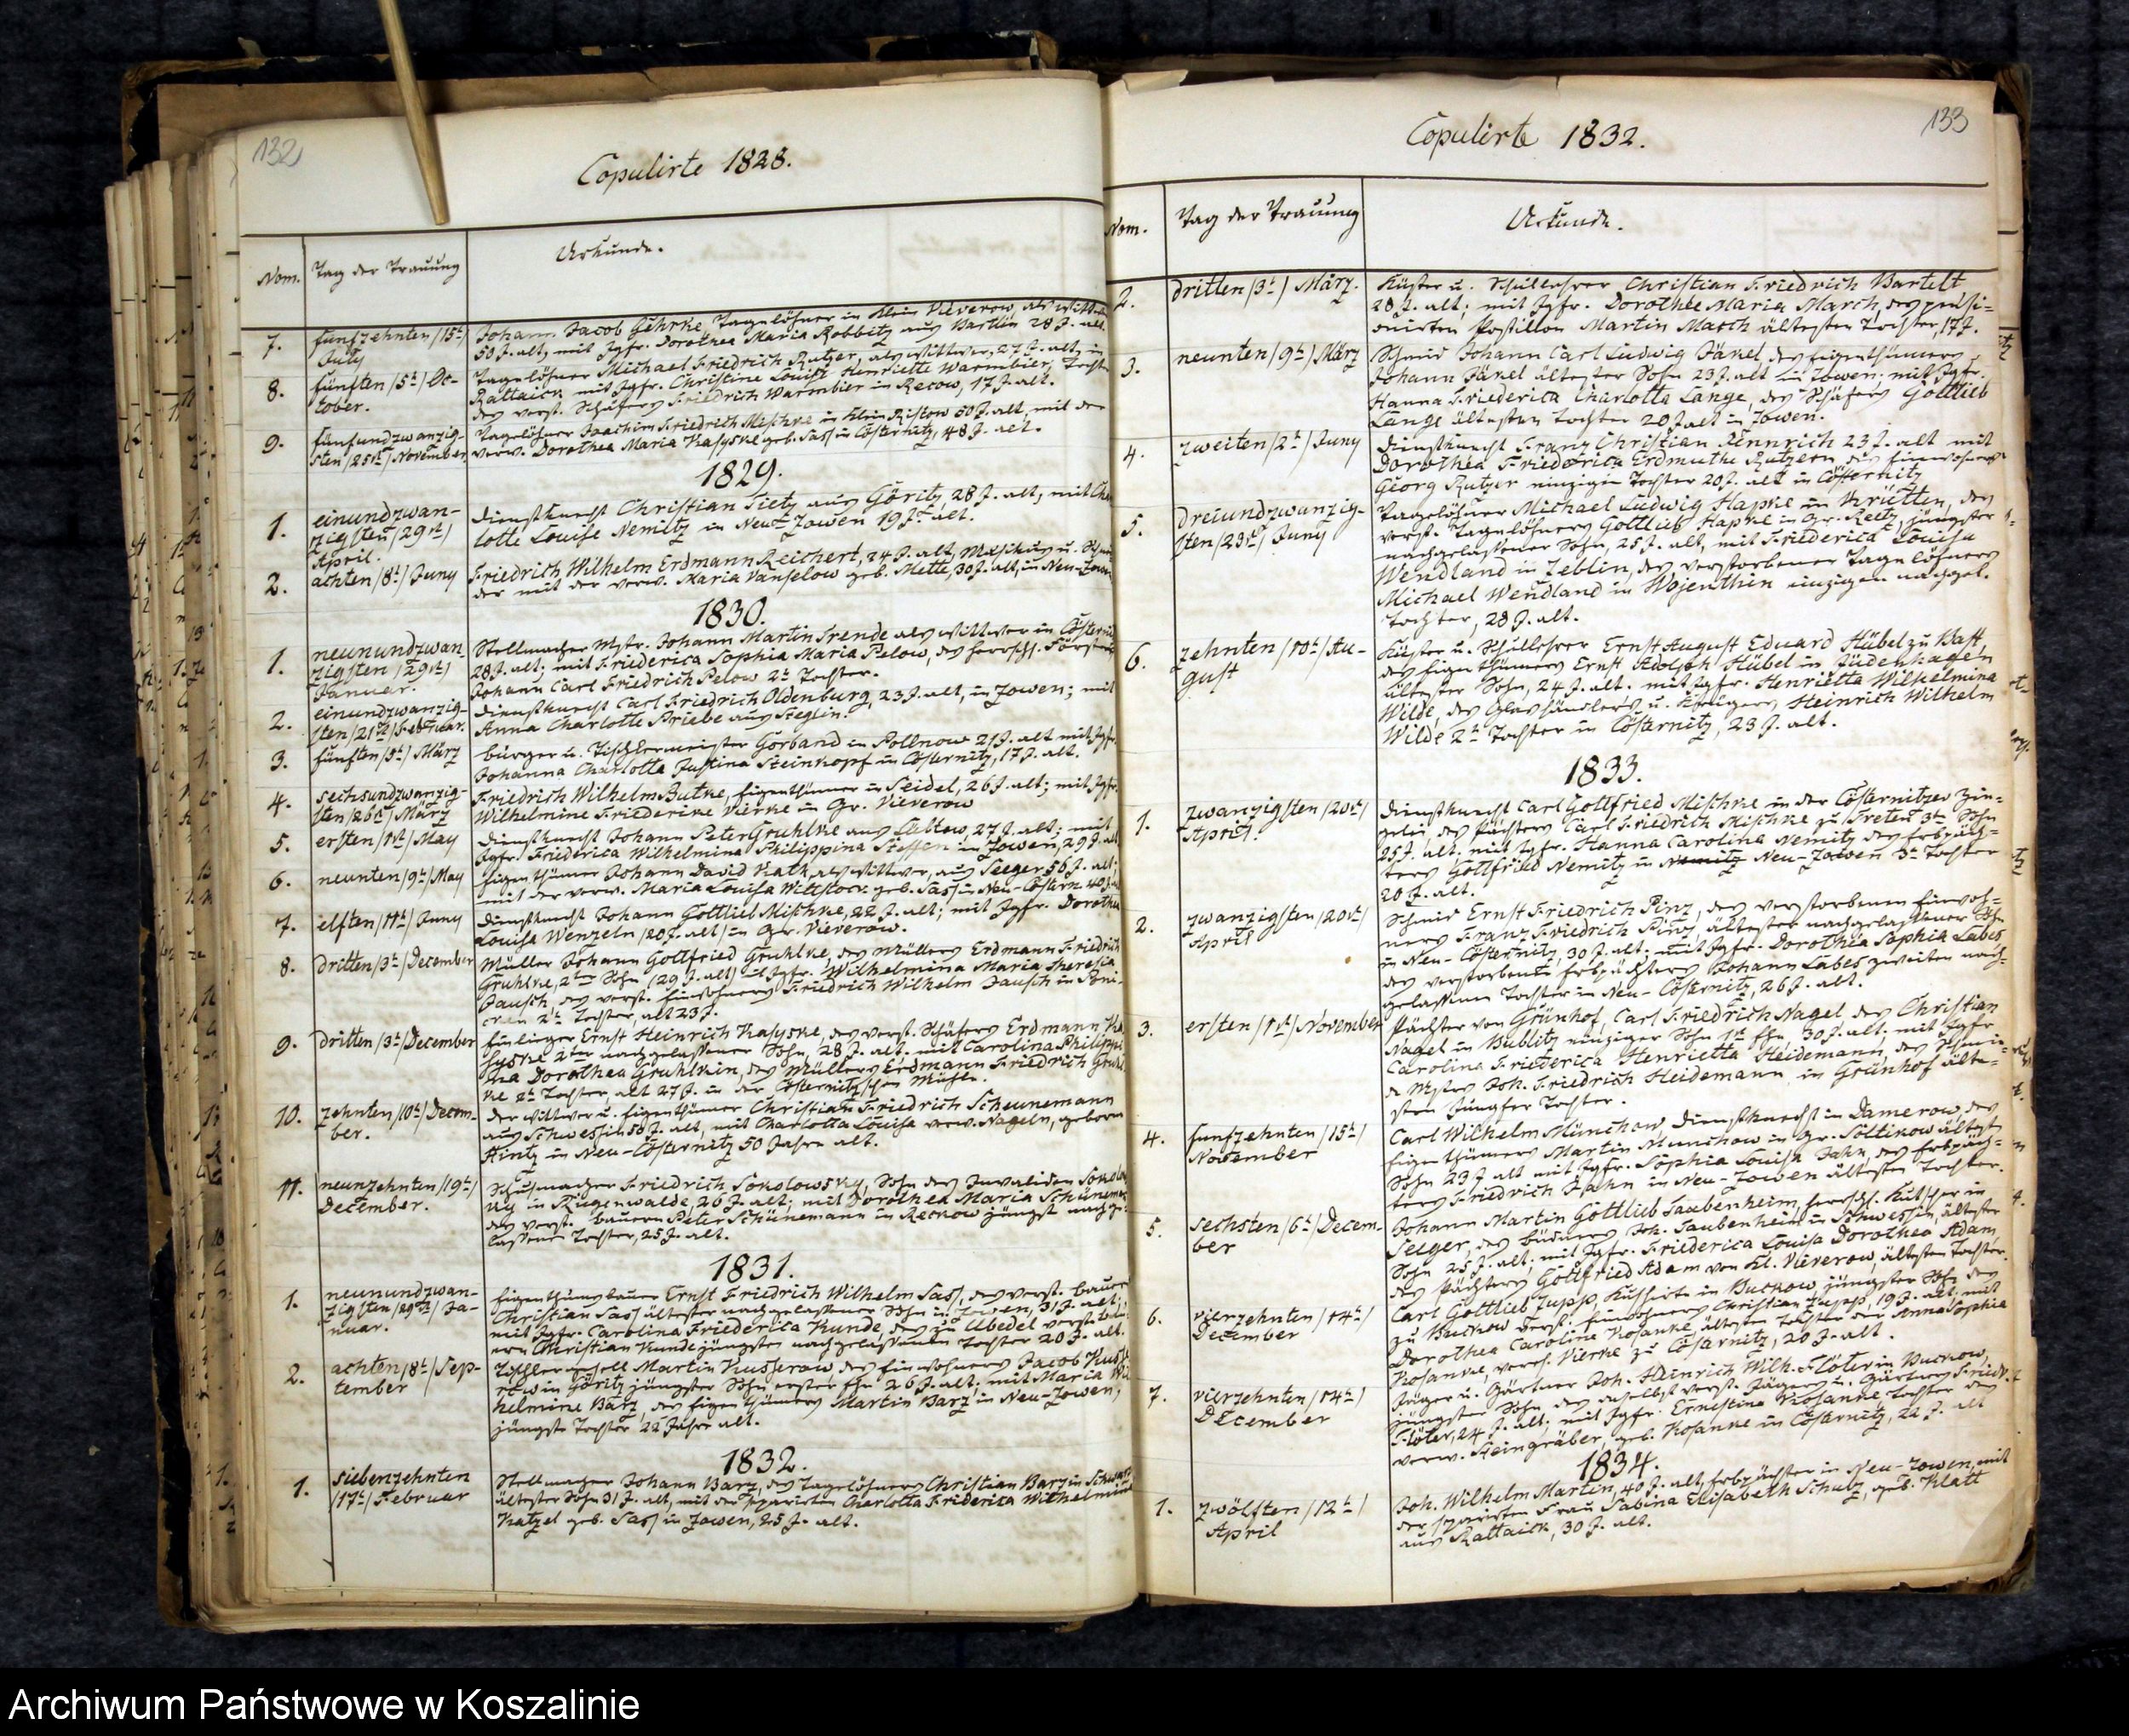 132
Copulirte 1828.
Nom. Tag der Trauung Urkunde.
7. funfzehnten /15t/ July
Johann Jacob Gehrke, Tagelöhner in Klein Vieverow, als Wittwer
50 J. alt, mit Jgfr. Dorothea Maria Robbitz aus Bartlin 28 J. alt.
8. fünften /5t/ October.
Tagelöhner Michael Friedrich Rutzer, als Wittwer, 27 J. alt, in
Rattaick mit Jgfr. Christine Louise Henriette Warmbier, Tochter
des verst. Schäfers Friedrich Warmbier in Recow, 17 J. alt.
9. fünfundzwanzigsten /25st/ November
Tagelöhner Joachim Friedrich Mischke in Klein Ristow 50 J. alt, mit der
verw. Dorothea Maria Kasyske geb. Sass in Cösternitz, 48 J. alt.
1829.
1. einundzwanzigsten /29st/ April.
Dienstknecht Christian Tietz aus Göritz, 28 J. alt, mit Charlotte
Louise Nemitz in Neu-Zowen 19 J. alt.
2. achten /8t/ Juny
Friedrich Wilhelm Erdmann Reichert, 24 J. alt, Musikus u. Schneider
mit der verw. Maria Vanselow geb. Mette, 30 J. alt, in Neu-Zowen
1830.
1. neunundzwanzigsten /29st/ Januar.
Stellmacher Mstr. Johann Martin Trende als Wittwer in Cösternitz
28 J. alt; mit Friederica Sophia Maria Pelow, des herrsch. Försters
Johann Carl Friedrich Pelow 2te Tochter.
2. einundzwanzigsten /21st/ Februar.
Dienstknecht Carl Friedrich Oldenburg, 23 J. alt, in Zowen; mit
Anna Charlotte Priebe aus Steglin.
3. fünften /5t/ März
Bürger u. Tischlermeister Gorband in Pollnow 21 J. alt mit Jgfr.
Johanna Charlotta Justina Steinkopf in Cösternitz, 17 J. alt.
4. sechsundzwanzigsten /26st/ März
Friedrich Wilhelm Butke, Eigenthümer in Seidel, 26 J. alt; mit Jgfr.
Wilhelmine Friederike Vierke in Gr. Vieverow
5. ersten /1st/ May
Dienstknecht Johann Peter Gruhlke aus Lübtow, 27 J. alt; mit
Jgfr. Friederica Wilhelmina Philippina Steffen in Zowen, 29 J. alt
6. neunten /9t/ May
Eigenthümer Johann David Kath, als Wittwer, aus Seeger 56 J. alt;
mit der verw. Maria Louisa Wittstock geb. Sass in Neu-Cöstern. 40 J. alt
7. elften /11t/ Juny
Dienstknecht Johann Gottlieb Mischke, 22 J. alt; mit Jgfr. Dorothea
Louisa Wenzeln /20 J. alt/ in Gr. Vieverow.
8. dritten /3t/ December
Müller Johann Gottfried Gruhlke, des Müllers Erdmann Friedrich
Gruhlke, 2ter Sohn (29 J. alt) mit Jgfr. Wilhelmina Maria Theresia
Jausch, des verst. Einwohners Friedrich Wilhelm Jausch in
2te Tochter, alt 23 J.
9. dritten /3t/ December
Einlieger Ernst Heinrich Kasyske, des verst. Schäfers Erdmann
2ter nachgelassener Sohn, 28 J. alt. mit Carolina
Dorothea Gruhlkin, des Müllers Erdmann Friedrich
2te Tochter, alt 27 J. in der Cösternitzschen Mühle.
10. zehnten /10t/ December.
Der Wittwer u. Eigenthümer Christian Friedrich Scheunemann
aus Schwessin 50 J. alt, mit Charlotta Louisa verw. Nageln, geborn
Hintz in Neu-Cösternitz 50 Jahre alt.
11. neunzehnten /19t/ December.
Schuhmacher Friedrich Sokolowsky, Sohn des Invaliden
in Rügenwalde, 26 J. alt; mit Dorothea Maria Schünemann
des verst. Bauern Peter Schünemann in Reckow jüngst nachgelassener
Tochter, 25 J. alt.
1831.
1. neunundzwanzigsten /29st/ Januar.
Eigenthumsbauer Ernst Friedrich Wilhelm Sass, des verst. Bauer
Christian Sass ältester nachgelassener Sohn in Zowen, 31 J. alt;
mit Jgfr. Carolina Friederica Kunde, des zu Ubedel verst.
Christian Kunde jüngsten nachgelassenen Tochter 20 J. alt.
2. achten /8t/ September
Tischlergesell Martin Kusserow, des Einwohners Jacob
in Göritz jüngster Sohn erster Ehe 26 J. alt; mit Maria Wilhelmine
Barz, des Eigenthümers Martin Barz in Neu-Zowen,
jüngste Tochter 22 Jahre alt.
1832.
1. siebenzehnten /17t/ Februar
Stellmacher Johann Barz, des Tagelöhners Christian Barz in
ältester Sohn 31 J. alt, mit der separirten Charlotta Friderica Wilhelmina
Katzel geb. Sass in Zowen, 25 J. alt.
133
Copulirte 1832.
Nom. Tag der Trauung Urkunde.
2. dritten /3t/ März.
Küster u. Schullehrer Christian Friedrich Bartelt
28 J. alt; mit Jgfr. Dorothee Maria March, des pensionirten
Postillon Martin March ältester Tochter, 17 J.
3. neunten /9t/ März
Schmid Johann Carl Ludwig Jäkel, des Eigenthümers
Johann Jäkel ältester Sohn 23 J. alt in Zowen. mit Jgfr.
Hanna Friederica Charlotta Lange, des Schäfers Gottlieb
Lange ältesten Tochter 20 J. alt in Zowen.
4. zweiten /2t/ Juny
Dienstknecht Franz Christian Rennrich 23 J. alt mit
Dorothea Friederica Erdmuthe Rutzern des Einwohners
Georg Rutzer einzigen Tochter 20 J. alt in Cösternitz
5. dreiundzwanzigsten /23st/ Juny
Tagelöhner Michael Ludwig Hapke in Krütten, des
verst. Tagelöhners Gottlieb Hapke in Gr. Reetz, jüngster
nachgelassener Sohn, 25 J. alt, mit Friederica Louisa
Wendland in Zeblin, des verstorbener Tagelöhners
Michael Wendland in Wojenthin einzigen nachgel.
Tochter, 28 J. alt.
6. zehnten /10t/ August
Küster u. Schullehrer Ernst August Eduard Hübel zu Bast,
des Eigenthümers Ernst Adolph Hübel in Jüdenhagen
ältester Sohn, 24 J. alt. mit Jgfr. Henrietta Wilhelmina
Wilde, des Glashändlers u. Krügers Heinrich Wilhelm
Wilde 2te Tochter in Cösternitz, 23 J. alt.
1833.
1. zwanzigsten /20st/ April.
Dienstknecht Carl Gottfried Mischke in der Cösternitzer Ziegelei
des Pächters Carl Friedrich Mischke zu Treten 3te Sohn
25 J. alt. mit Jgfr. Hanna Carolina Nemitz des Erbpächters
Gottfried Nemitz in Nemitz Neu-Zowen 3te Tochter
20 J. alt.
2. zwanzigsten /20st/ April
Schmid Ernst Friedrich Pinz, des verstorbenen Einwohners
Franz Friedrich Pinz, ältester nachgelassener Sohn
in Neu-Cösternitz, 30 J. alt; mit Jgfr. Dorothea Sophia Labes
des verstorbenen Erbpächters Johann Labes zweiten nachgelassenen
Tochter in Neu-Cösternitz, 26 J. alt.
3. ersten /1st/ November
Pächter von Grünhof, Carl Friedrich Nagel des Christian
Nagel in Bublitz einziger Sohn 1ter Ehe, 30 J. alt, mit Jgfr.
Carolina Friederica Henrietta Heidemann, des
Mstrs Joh. Friedrich Heidemann in Grünhof ältesten
Jungfer Tochter.
4. funfzehnten /15t/ November
Carl Wilhelm Münchow Dienstknecht in Damerow, des
Eigenthümers Martin Münchow in Gr. Soltikow ältest.
Sohn 23 J alt mit Jgfr. Sophia Louisa Jahn, des Erbpächters
Friedrich Jahn in Neu-Zowen ältesten Tochter.
5. sechsten /6t/ December
Johann Martin Gottlieb Taubenheim, herrsch. Kutscher in
Seeger, des Büdners Joh. Taubenheim in Schwessin, ältester
Sohn 25 J. alt; mit Jgfr. Friederica Louisa Dorothea Adam,
des Pächters Gottfried Adam von Kl. Vieverow, ältesten Tochter.
6. vierzehnten /14t/ December
Carl Gottlieb Zupp, Kuhhirte in Buckow, jüngster Sohn des
zu Buckow verst. Einwohners Christian Zupp, 19 J. alt; mit
Dorothea Caroline Kosanke ältesten Tochter der Anna Sophia
Kosanke, verehl. Vierke zu Cösternitz, 20 J. alt.
7. vierzehnten /14t/ December
Jäger u. Gärtner Joh. Heinrich Wilh. Flöter in Buckow,
jüngster Sohn des daselbst verst. Jägers u. Gärtners Friedr.
Flöter, 24 J. alt; mit Jgfr. Ernestine Kosanke Tochter der
verw. Steingräber, geb. Kosanke in Cösternitz, 22 J. alt
1834.
1. zwölften /12t/ April
Joh. Wilhelm Martin, 40 J. alt, Erbpächter in Neu-Zowen, mit
der separirten Frau Sabina Elisabeth Schulz, geb. Klatt
aus Rattaick, 30 J. alt.
Archiwum Państwowe w Koszalinie